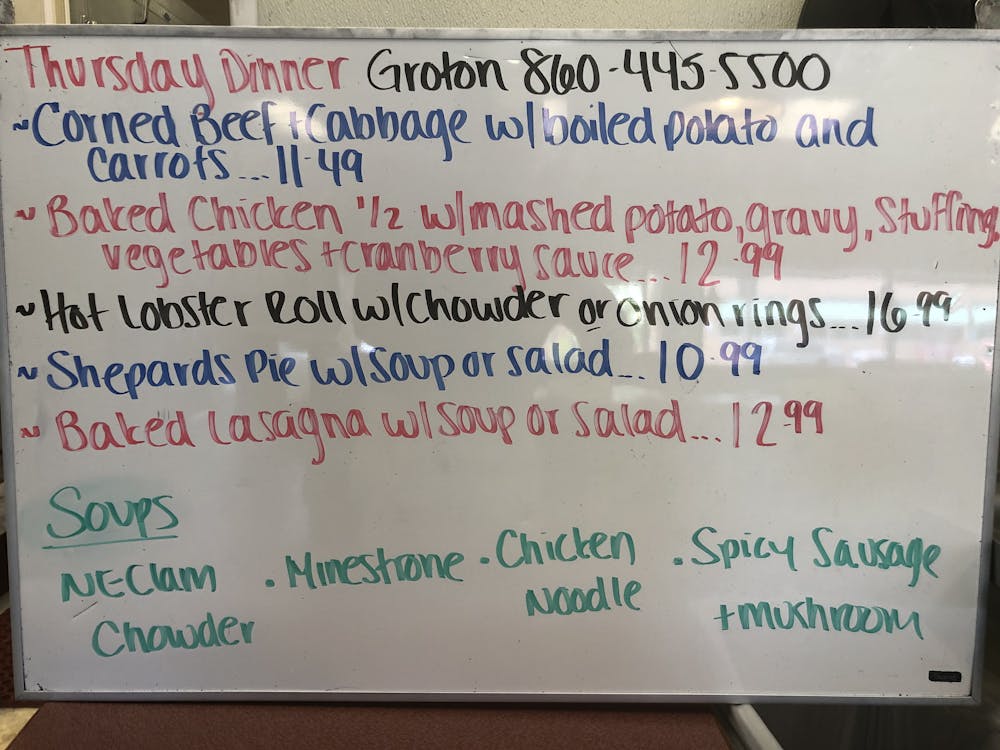 Thursday Dinner Groton 860-445-5500
~Corned Beef + Cabbage w/boiled potato and
Carrots...11.49
~ Baked Chicken 1/2 w/mashed potato, gravy, Stuffing,
vegetables + cranberry sauce...12.99
~Hot Lobster Roll w/Chowder or onion rings...16.99
~ Shepards Pie w/soup or salad...10.99
~ Baked Lasagna w/soup or salad...12.99
Soups
NE Clam
Chowder
· Minestrone
· Chicken
Noodle
· Spicy Sausage
+ mushroom